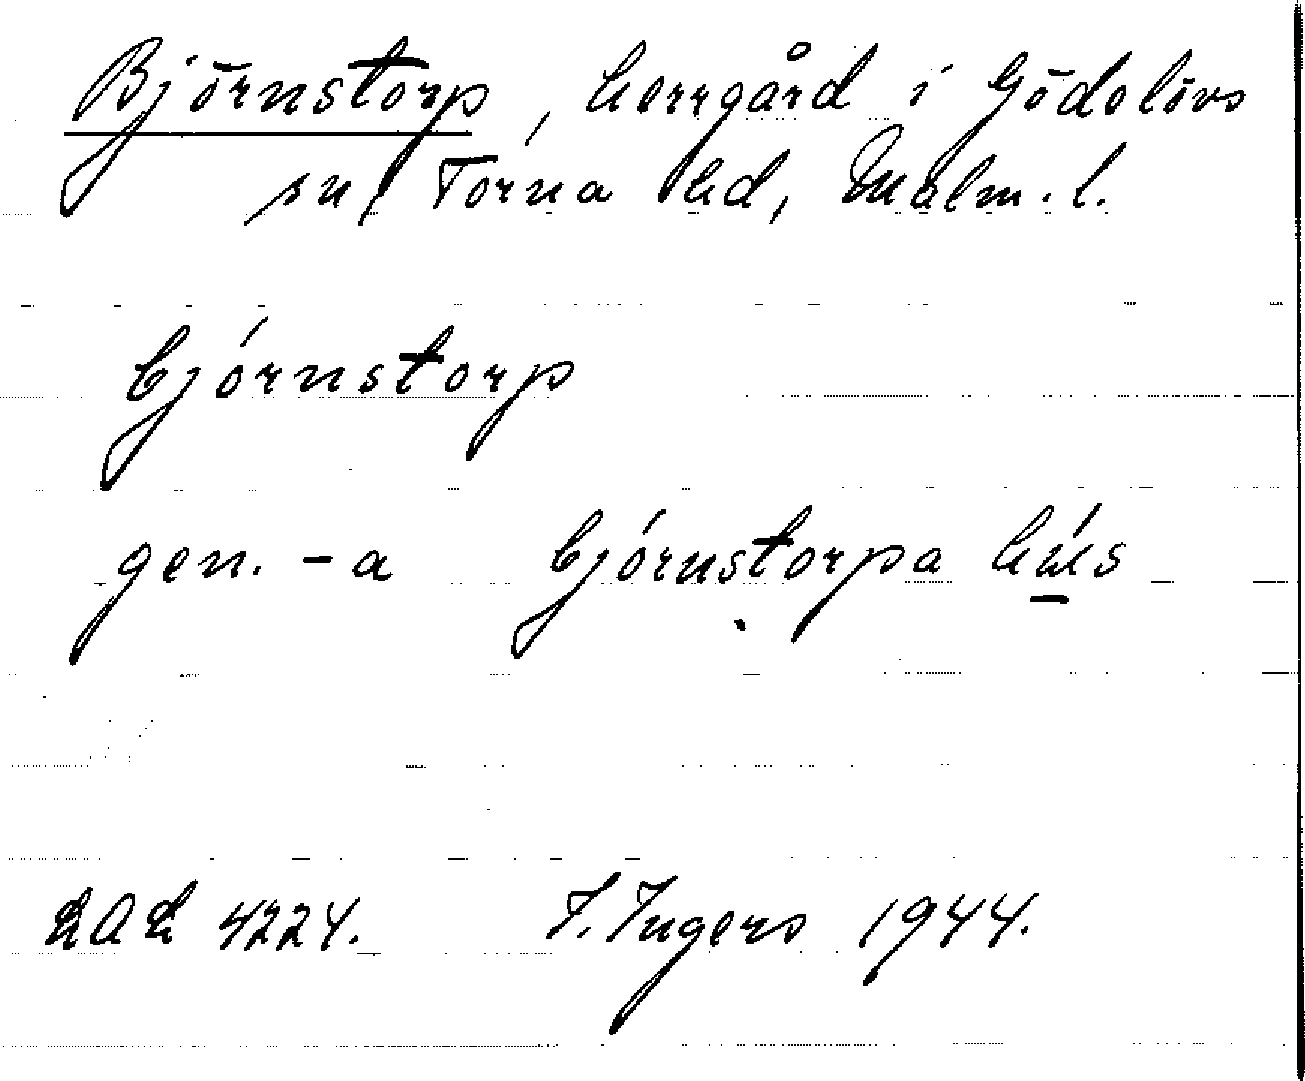 Björnstorp, herrgård i Gödelövs
sn, Torna hd, Malm. l.
bjórnstorp
gen. -a bjórnstorpa hús
LAL 4224. I. Ingers 1944.